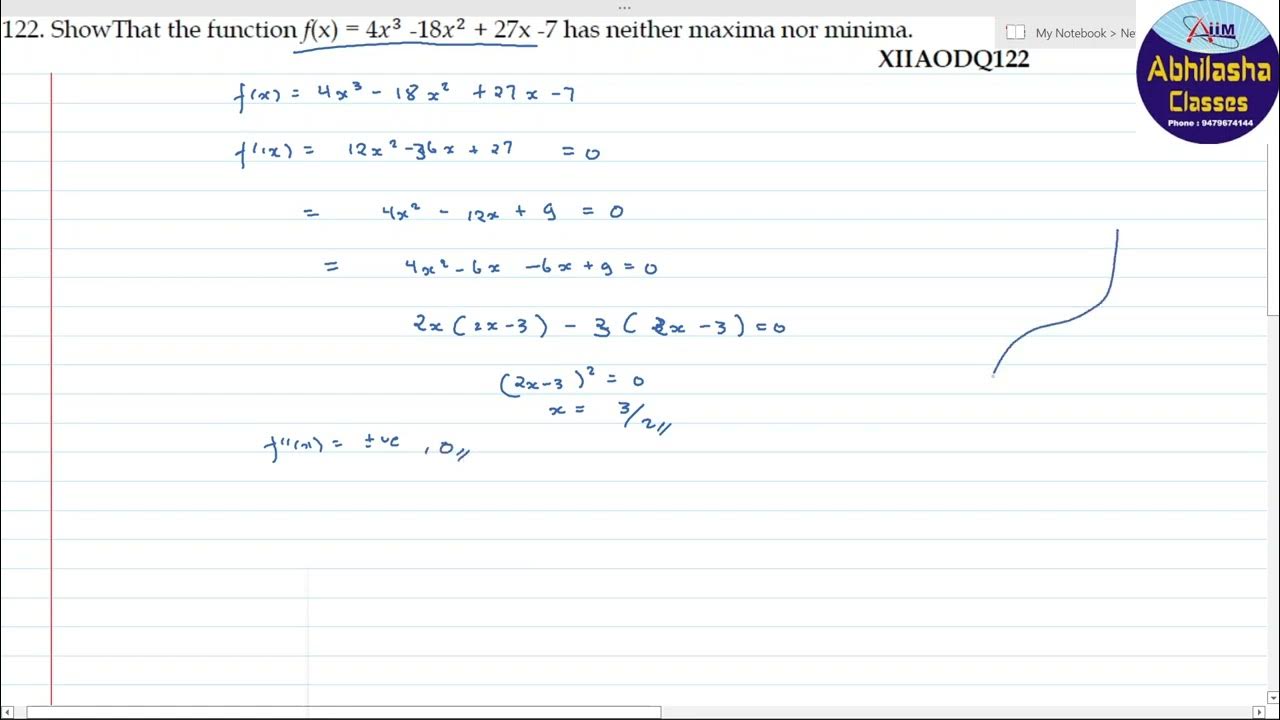 122. ShowThat the function f(x) = 4x³ -18x² + 27x -7 has neither maxima nor minima.
My Notebook > Ne
XIIAODQ122
AiiM
Abhilasha
Classes
Phone : 9479674144
f(x) = 4x³ - 18x² + 27x - 7
f'(x) = 12x² - 36x + 27 = 0
= 4x² - 12x + 9 = 0
= 4x² - 6x - 6x + 9 = 0
2x (2x - 3) - 3 (2x - 3) = 0
(2x - 3)² = 0
x = 3/2 //
f''(x) = ±ve , 0 //